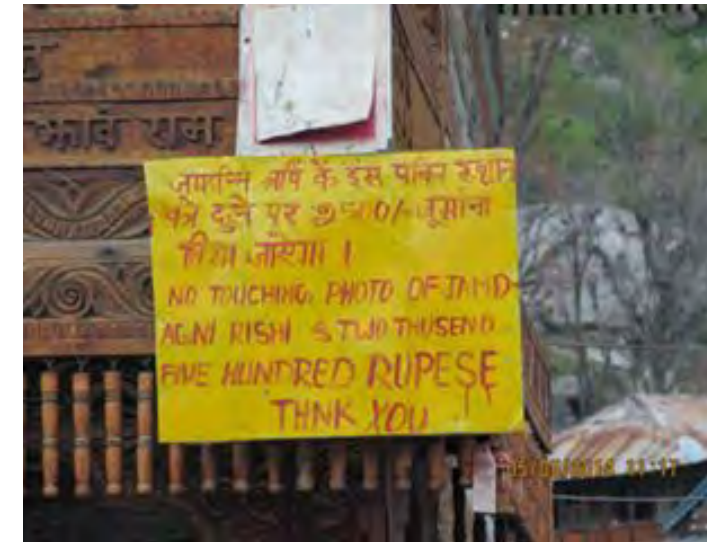 झावे राम
जमदग्नि ऋषि के इस पवित्र स्थान
को छुने पर 2500/- जुर्माना
कीया जाएगा ।
NO TOUCHING PHOTO OF JAMD
AGNI RISHI & TWO THUSEND
FIVE HUNDRED RUPESE
THNK YOU